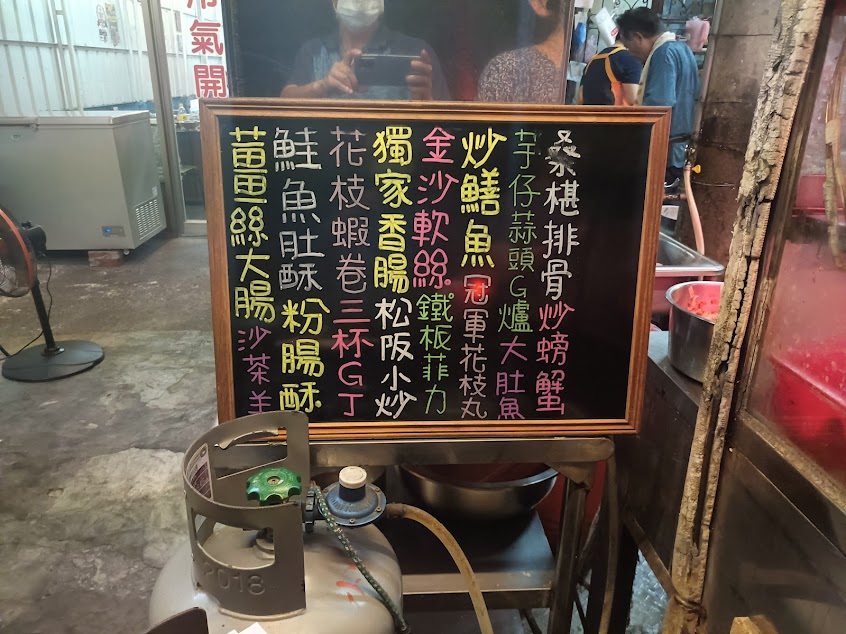 冷氣開
桑椹排骨炒螃蟹
芋仔蒜頭G爐大肚魚
炒鱔魚冠軍花枝丸
金沙軟絲鐵板菲力
獨家香腸松阪小炒
花枝蝦卷三杯G丁
鮭魚肚酥粉腸酥
薑絲大腸沙茶羊
2018